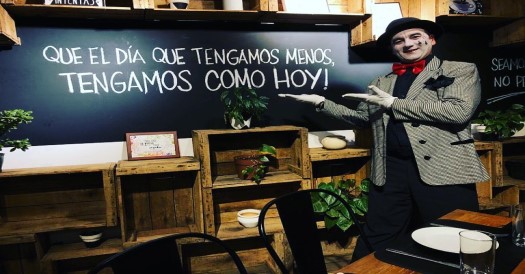 INTENTAS
QUE EL DÍA QUE TENGAMOS MENOS,
TENGAMOS COMO HOY!
SEAMOS
NO P